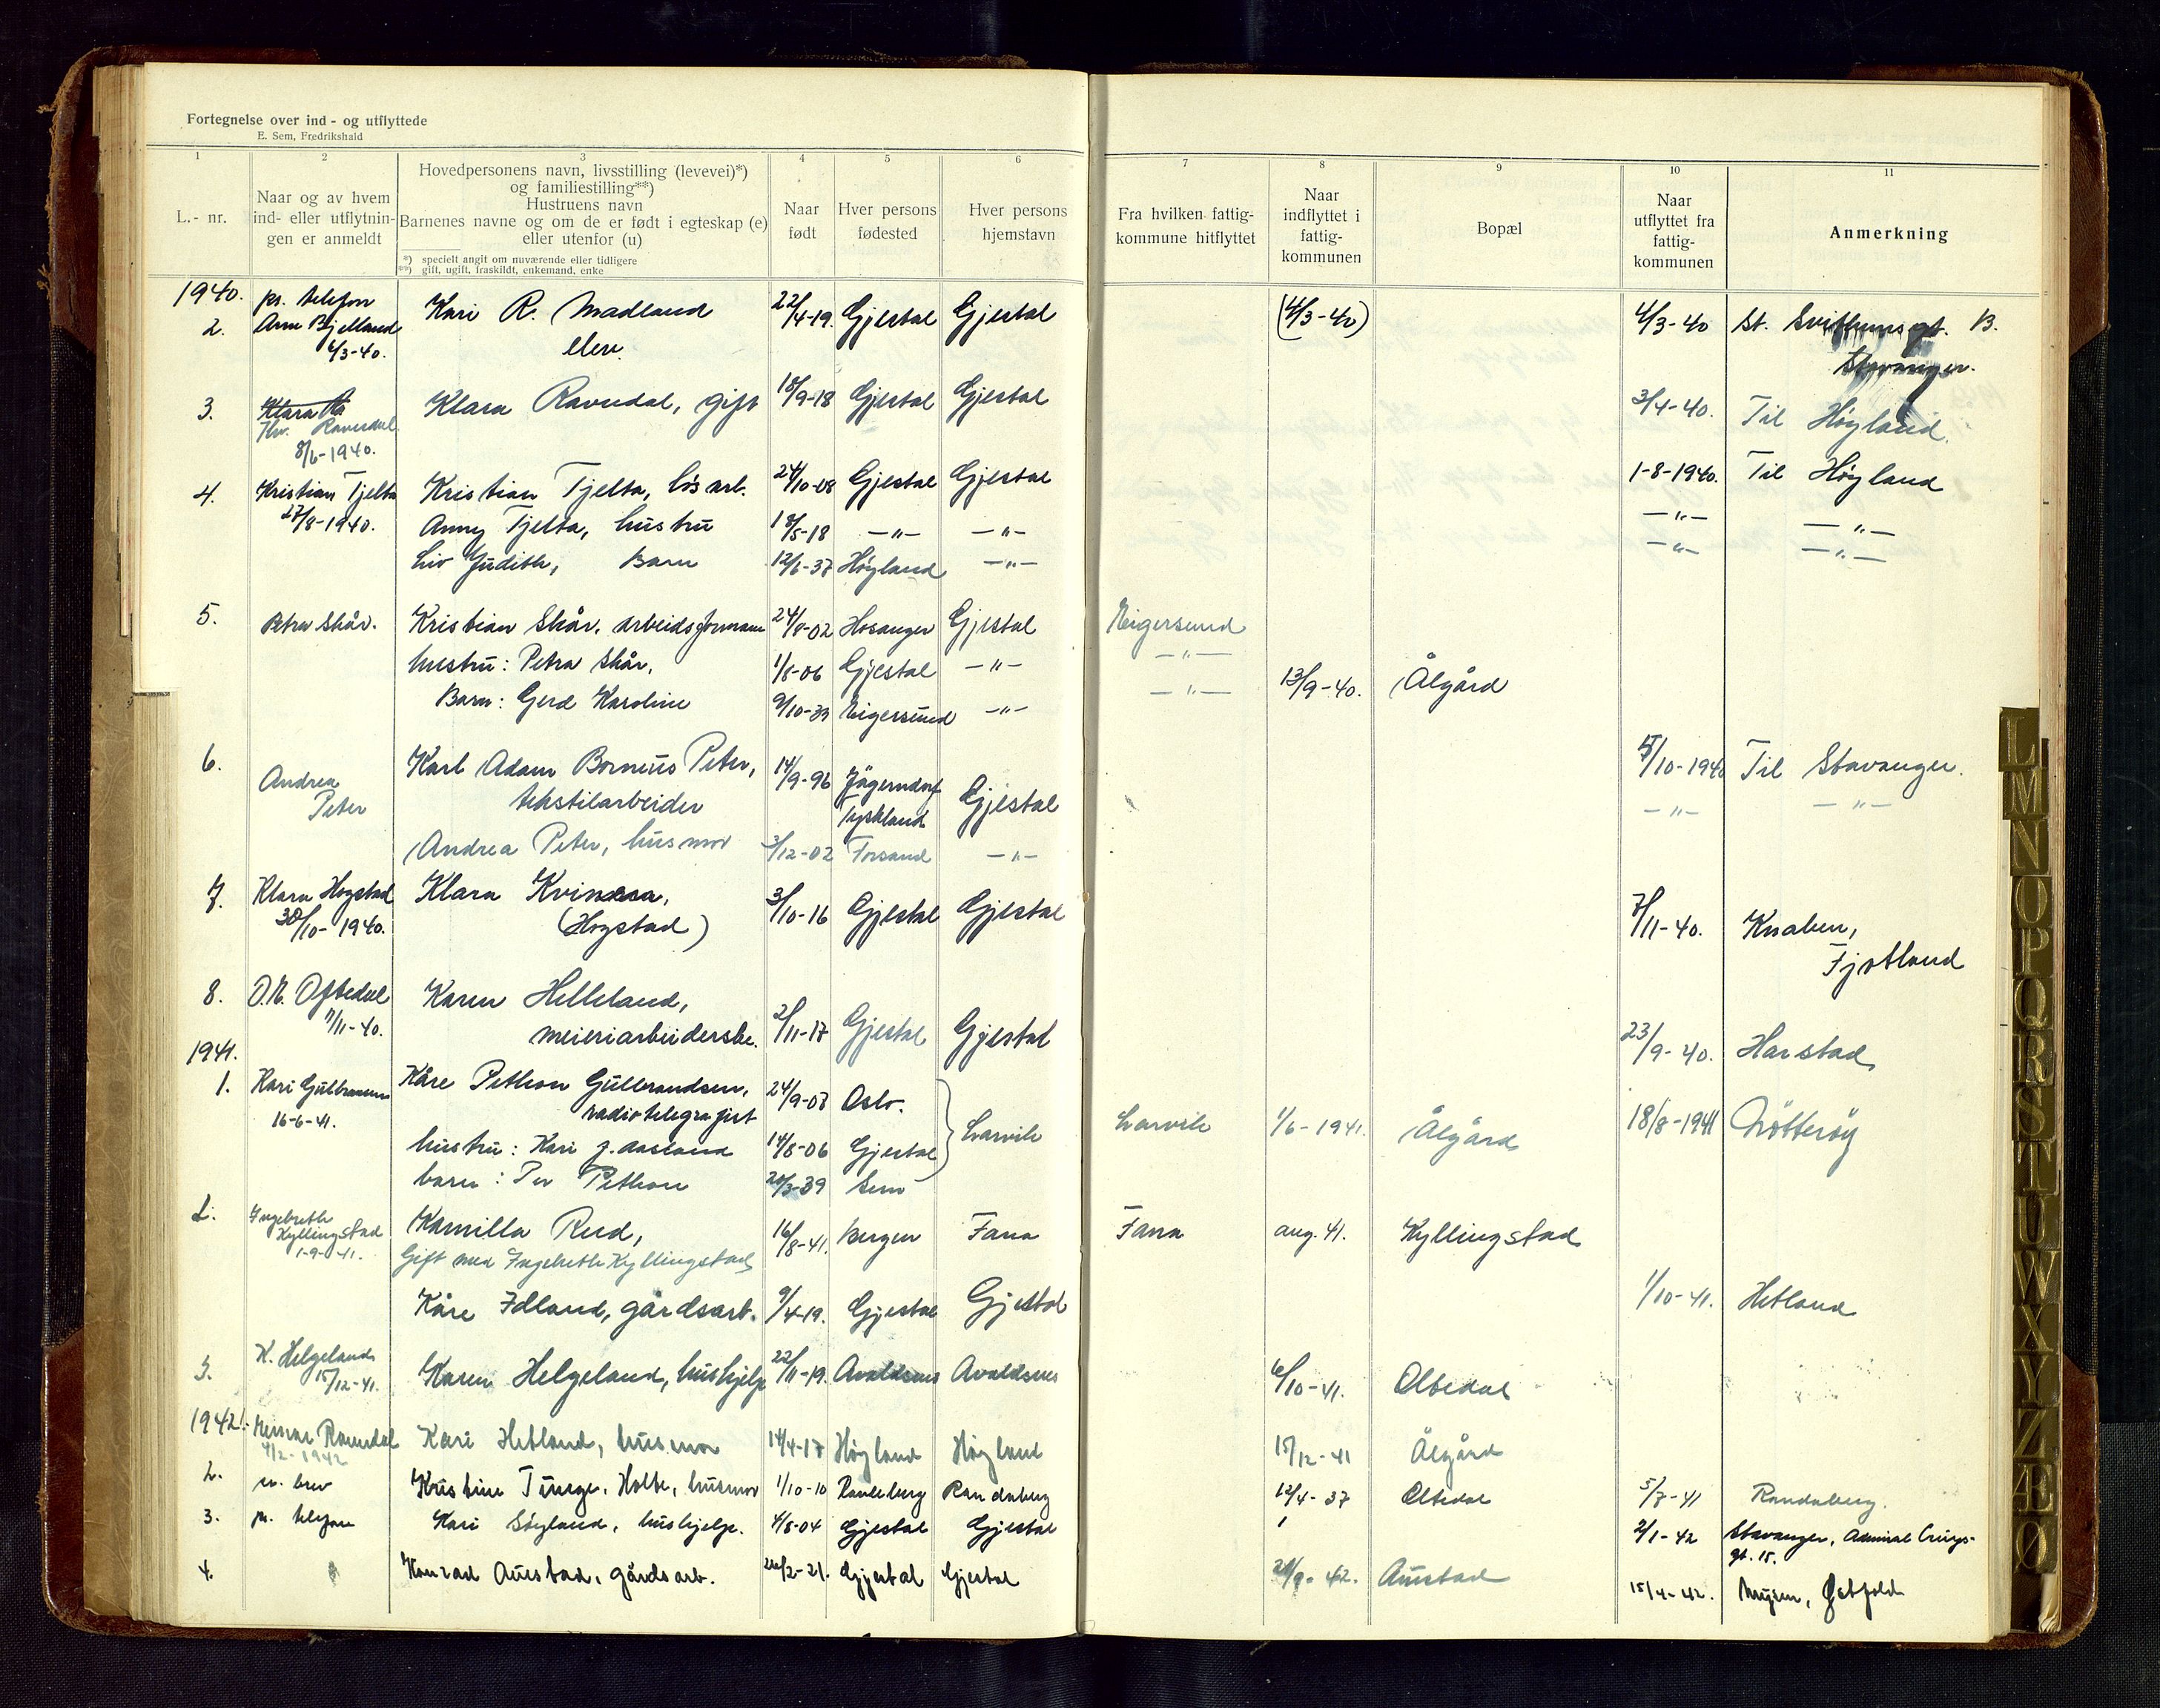 Fortegnelse over ind- og utflyttede
E. Sem, Fredrikshald
1 2 3 4 5 6 7 8 9 10 11
L.- nr.
Naar og av hvem ind- eller utflytningen er anmeldt
Hovedpersonens navn, livsstilling (levevei)*)
og familiestilling**)
Hustruens navn
Barnenes navne og om de er født i egteskap (e)
eller utenfor (u)
*) specielt angit om nuværende eller tidligere
**) gift, ugift, fraskildt, enkemand, enke
Naar født
Hver persons fødested
Hver persons hjemstavn
Fra hvilken fattigkommune hitflyttet
Naar indflyttet i fattigkommunen
Bopæl
Naar utflyttet fra fattigkommunen
Anmerkning
1940. pr. telefon
2. Arne Bjelland Kari R. Madland 22/4-19. Gjestal Gjestal (4/3-40) 4/3-40 St. Svithunsgt. B.
4/3-40. elev. Stavanger.
3. Klara Ra Klara Ravndal, gift 18/9-18 Gjestal Gjestal 3/4-40. Til Høyland.
Thv. Ravndal
8/6-1940.
4. Kristian Tjelta Kristian Tjelta, løsarb. 24/10-08 Gjestal Gjestal 1-8-1940. Til Høyland
27/8-1940. Anny Tjelta, hustru 18/5-18 —"— —"— —"— —"—
Liv Judith, Barn 12/6-37 Høyland —"— —"— —"—
5. Petra Skår. Kristian Skår, arbeidsformann 24/8-02 Hosanger Gjestal Eigersund
hustru: Petra Skår, 1/8-06 Gjestal —"— —"—
Barn: Gerd Karoline 9/10-39 Eigersund —"— —"— 13/9-40. Ålgård
6. Andrea Karl Adam Borneus Peter, 14/9-96 Jägerndorf 5/10-1940 Til Stavanger.
Peter tekstilarbeider Tyskland Gjestal —"— —"—
Andrea Peter, husmor 3/12-02 Forsand —"—
7. Klara Hogstad Klara Kvinesa, 3/10-16 Gjestal Gjestal 7/11-40. Knaben,
30/10-1940. (Hogstad) Fjotland
8. O.E. Oftedal Karen Helleland,
7/11-40. meieriarbeiderske. 2/11-17 Gjestal Gjestal 23/9-40. Harstad
1941.
1. Kari Gulbransen Kåre Pethon Gulbrandsen, 24/9-07 Oslo.
16-6-41. radiotelegrafist Larvik Larvik 1/6-1941. Ålgård 18/8-1941 Nøtterøy
hustru: Kari f. Aasland 14/8-06 Gjestal
barn: Per Pethon 20/3-39 Sem
2. Ingebreth Kamilla Rud, 16/8-41. Bergen Fana Fana aug. 41. Kyllingstad
Kyllingstad Gift med Ingebreth Kyllingstad
1-9-41.
Kåre Idland, gårdsarb. 9/4-19. Gjestal Gjestal 1/10-41. Hetland
3. K. Helgeland Karen Helgeland, hushjelp 22/11-19. Avaldsnes Avaldsnes 6/10-41. Oltedal
15/12-41.
1942 Ravndal Kari Hetland, husmor 14/4-17 Høyland Høyland 15/12-41 Ålgård
4/2-1942
2. pr. brev Kristine Tunge, Holte, husmor 1/10-10 Randeberg Randaberg 12/4-37 Oltedal 5/7-41 Randaberg.
3. pr. telefon Kari Søyland, hushjelp. 4/8-04 Gjestal Gjestal 2/1-42 Stavanger, Admiral Cruys-
gt. 15.
4. Konrad Austad, gårdsarb. Gjestal Gjestal Austad 15/4-42. Mysen, Østfold
L
M
N
O
P
Q
R
S
T
U
W
X
Y
Z
Æ
Ø